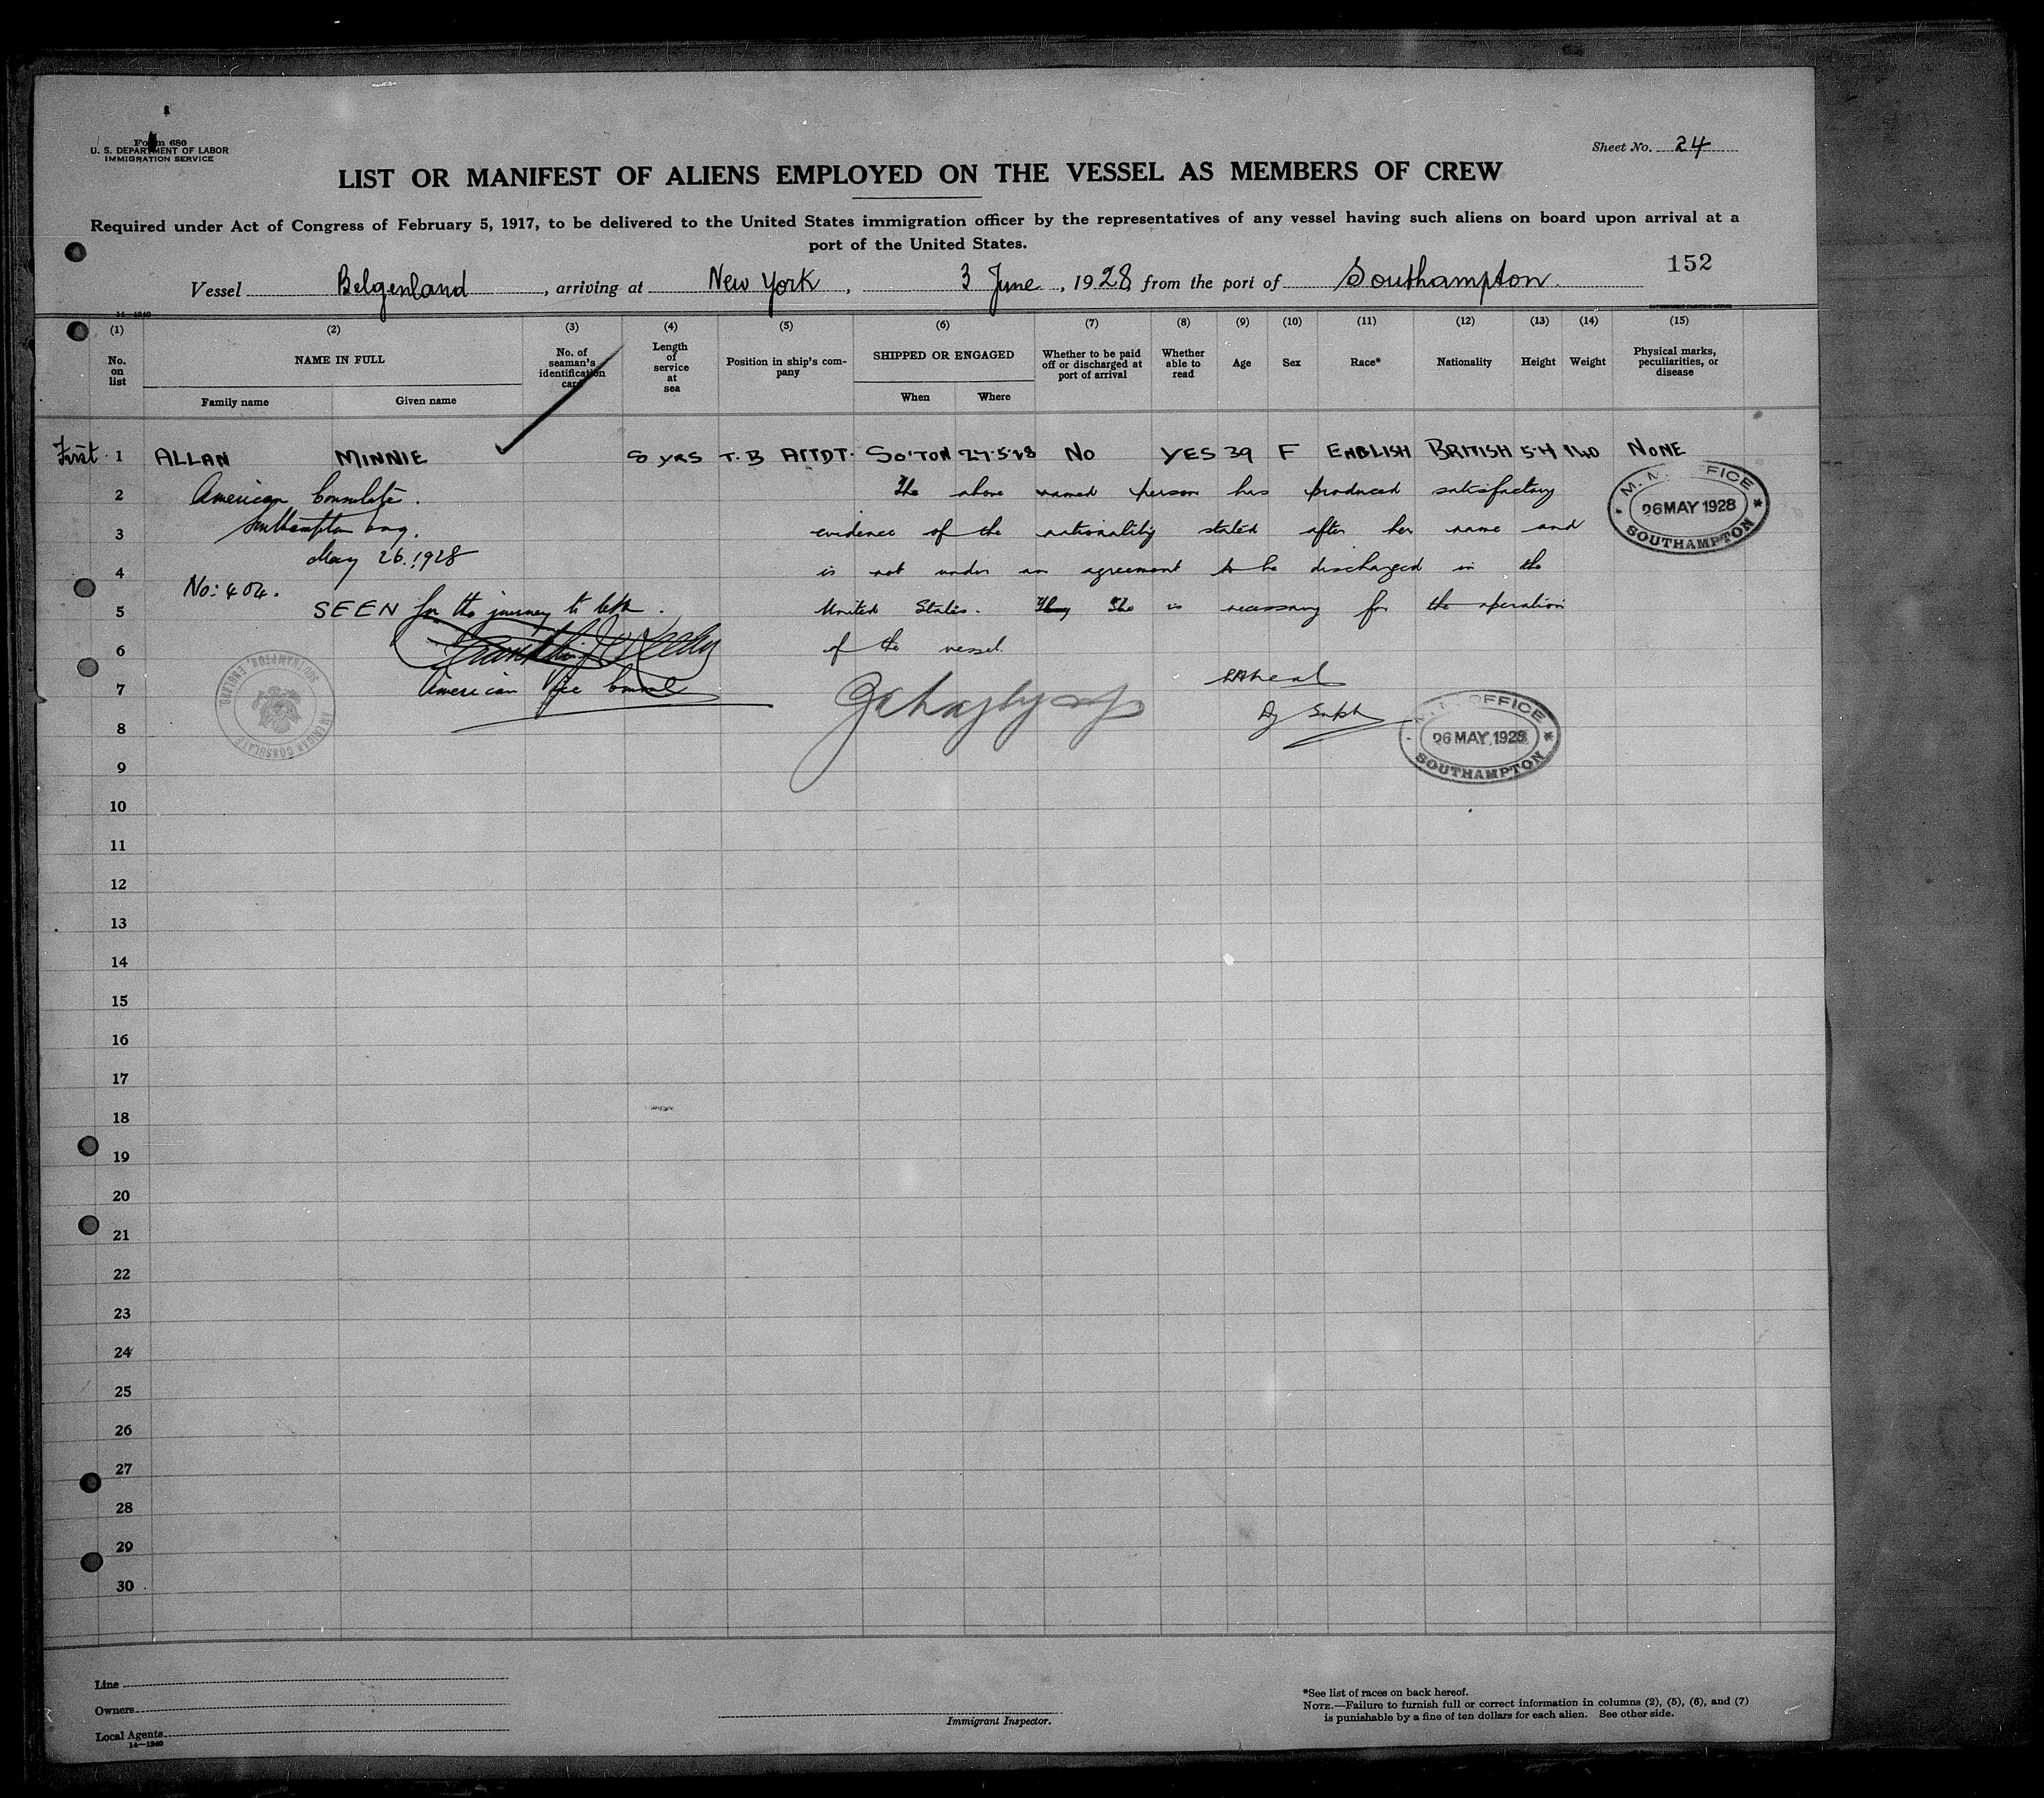 Form 680
U. S. DEPARTMENT OF LABOR
IMMIGRATION SERVICE
Sheet No. 24
LIST OR MANIFEST OF ALIENS EMPLOYED ON THE VESSEL AS MEMBERS OF CREW
Required under Act of Congress of February 5, 1917, to be delivered to the United States immigration officer by the representatives of any vessel having such aliens on board upon arrival at a
port of the United States.
152
Vessel Belgenland, arriving at New York, 3 June, 1928 from the port of Southampton.
14—1240
(1) (2) (3) (4) (5) (6) (7) (8) (9) (10) (11) (12) (13) (14) (15)
No. on list
NAME IN FULL
Family name
Given name
No. of seaman's identification card
Length of service at sea
Position in ship's company
SHIPPED OR ENGAGED
When
Where
Whether to be paid off or discharged at port of arrival
Whether able to read
Age
Sex
Race*
Nationality
Height
Weight
Physical marks, peculiarities, or disease
First 1 ALLAN MINNIE YRS T.B ATTDT. SO'TON 27.5.28 NO YES 39 F ENGLISH BRITISH 5.4 140 NONE
2 American Consulate. The above named person has produced satisfactory
3 Southampton Eng. evidence of the nationality stated after her name and
May 26, 1928
4 is not under an agreement to be discharged in the
No: 404.
5 SEEN for the journey to United States. They She is necessary for the operation
6 of the vessel.
7 American Vice Consul
Dy Supt
8
9
10
11
12
13
14
15
16
17
18
19
20
21
22
23
24
25
26
27
28
29
30
M. M. OFFICE
26 MAY 1928
SOUTHAMPTON
M. M. OFFICE
26 MAY 1928
SOUTHAMPTON
AMERICAN CONSULATE
SOUTHAMPTON, ENGLAND.
Line
Owners
Local Agents
14—1240
Immigrant Inspector.
*See list of races on back hereof.
NOTE.—Failure to furnish full or correct information in columns (2), (5), (6), and (7)
is punishable by a fine of ten dollars for each alien. See other side.